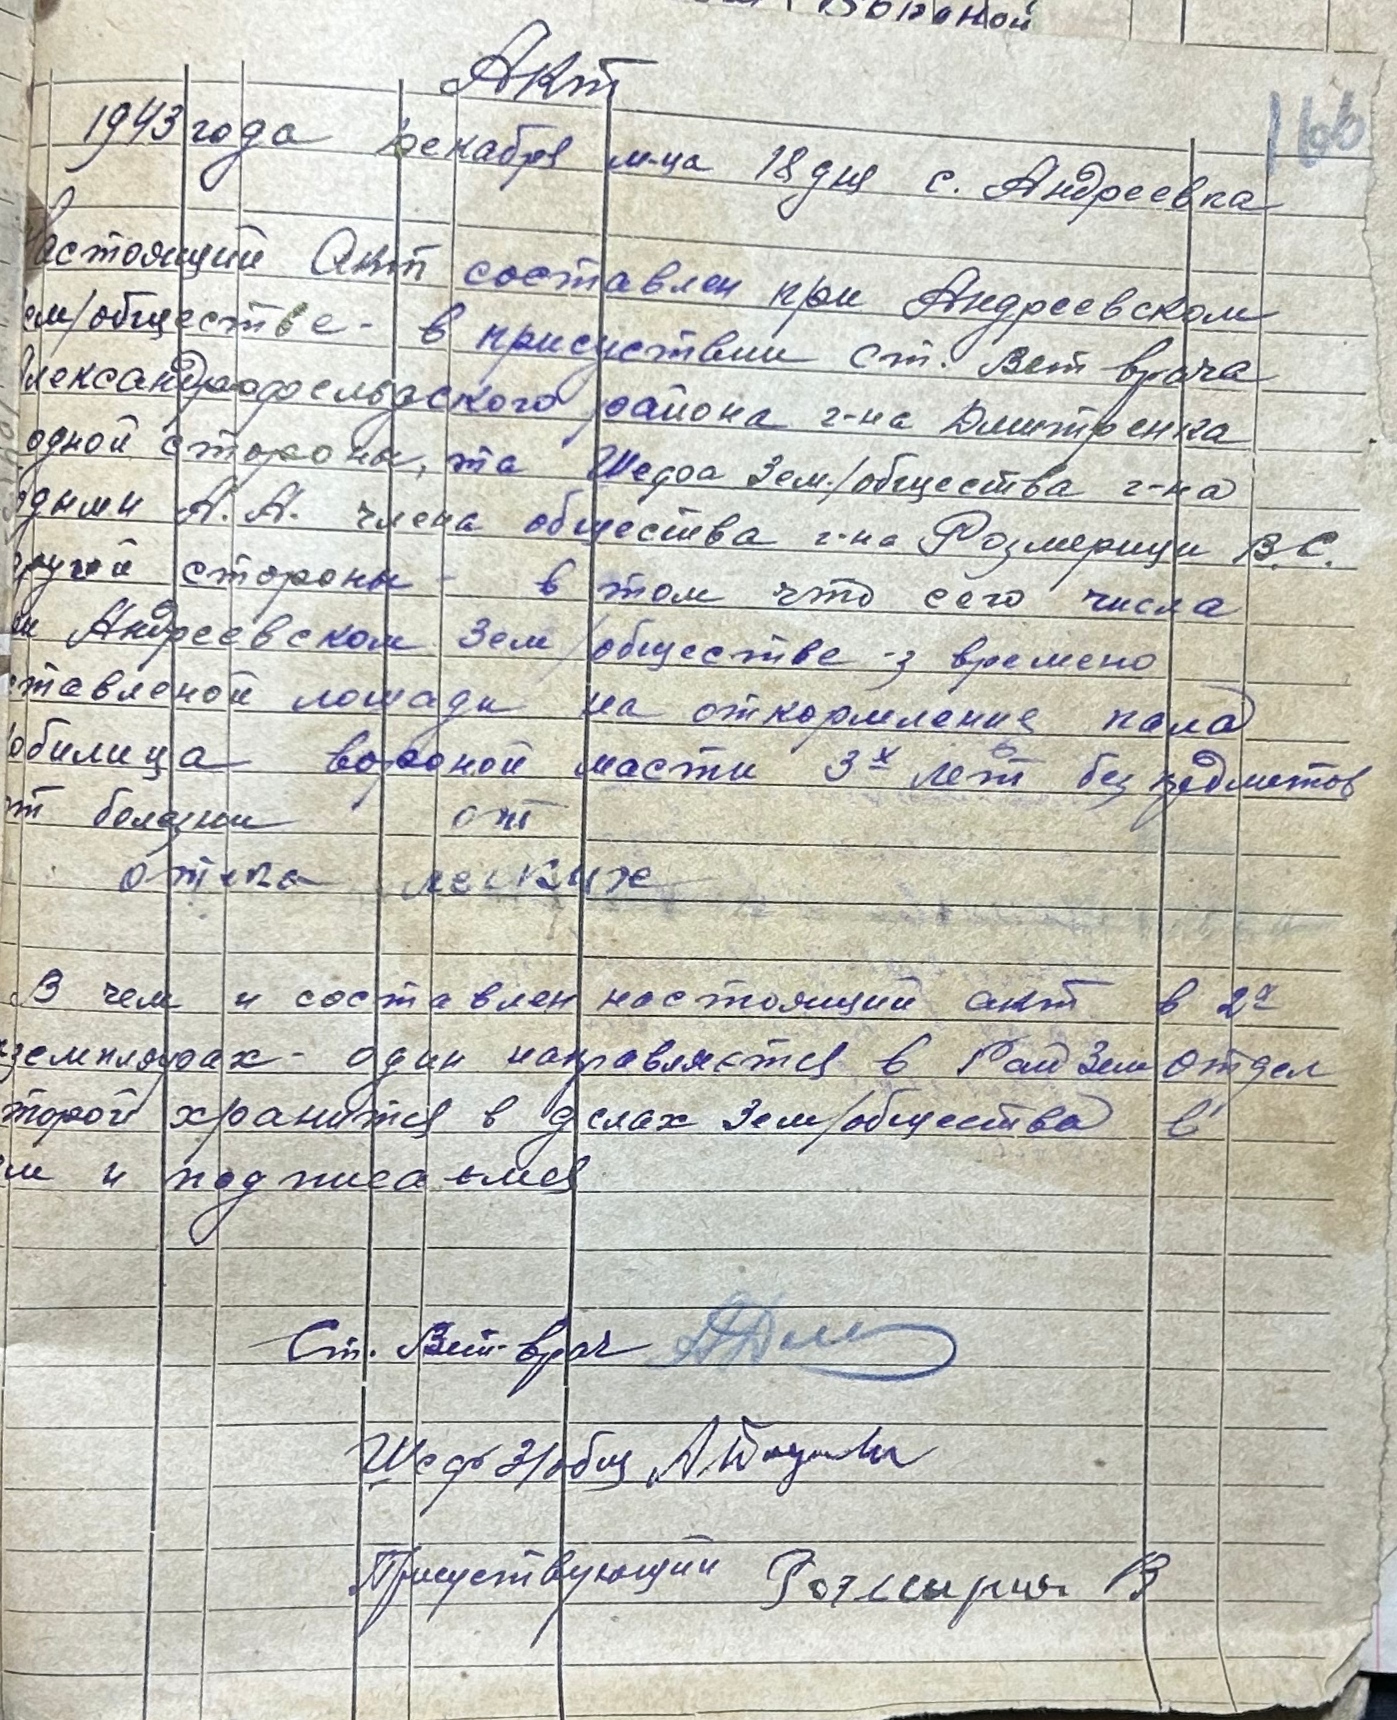 Акт
166
1943 года Декабря м-ца 18 дня с. Андреевка
Настоящий Акт составлен при Андреевском
ем/обществе - в присуствии ст. Вет врача
лександрофельдского района г-на Дмитренка
одной стороны, та Шефа Зем./общества г-на
А. А. члена общества г-на Розмерици В.С.
ругой стороны - в том что сего числа
ри Андреевском Зем/обществе -з времено
ставленой лошади на откормление пала
кобилица вороной масти 3х лет без
от болезни от
отека легких
В чем и составлен настоящий акт в 2х
кземплярах - один направляется в РайЗемотдел
торой хранится в делах Зем/общества в
ем и подписаемся
Ст. Вет-врач
Шеф З/общ
Присуствующий Розмирица В